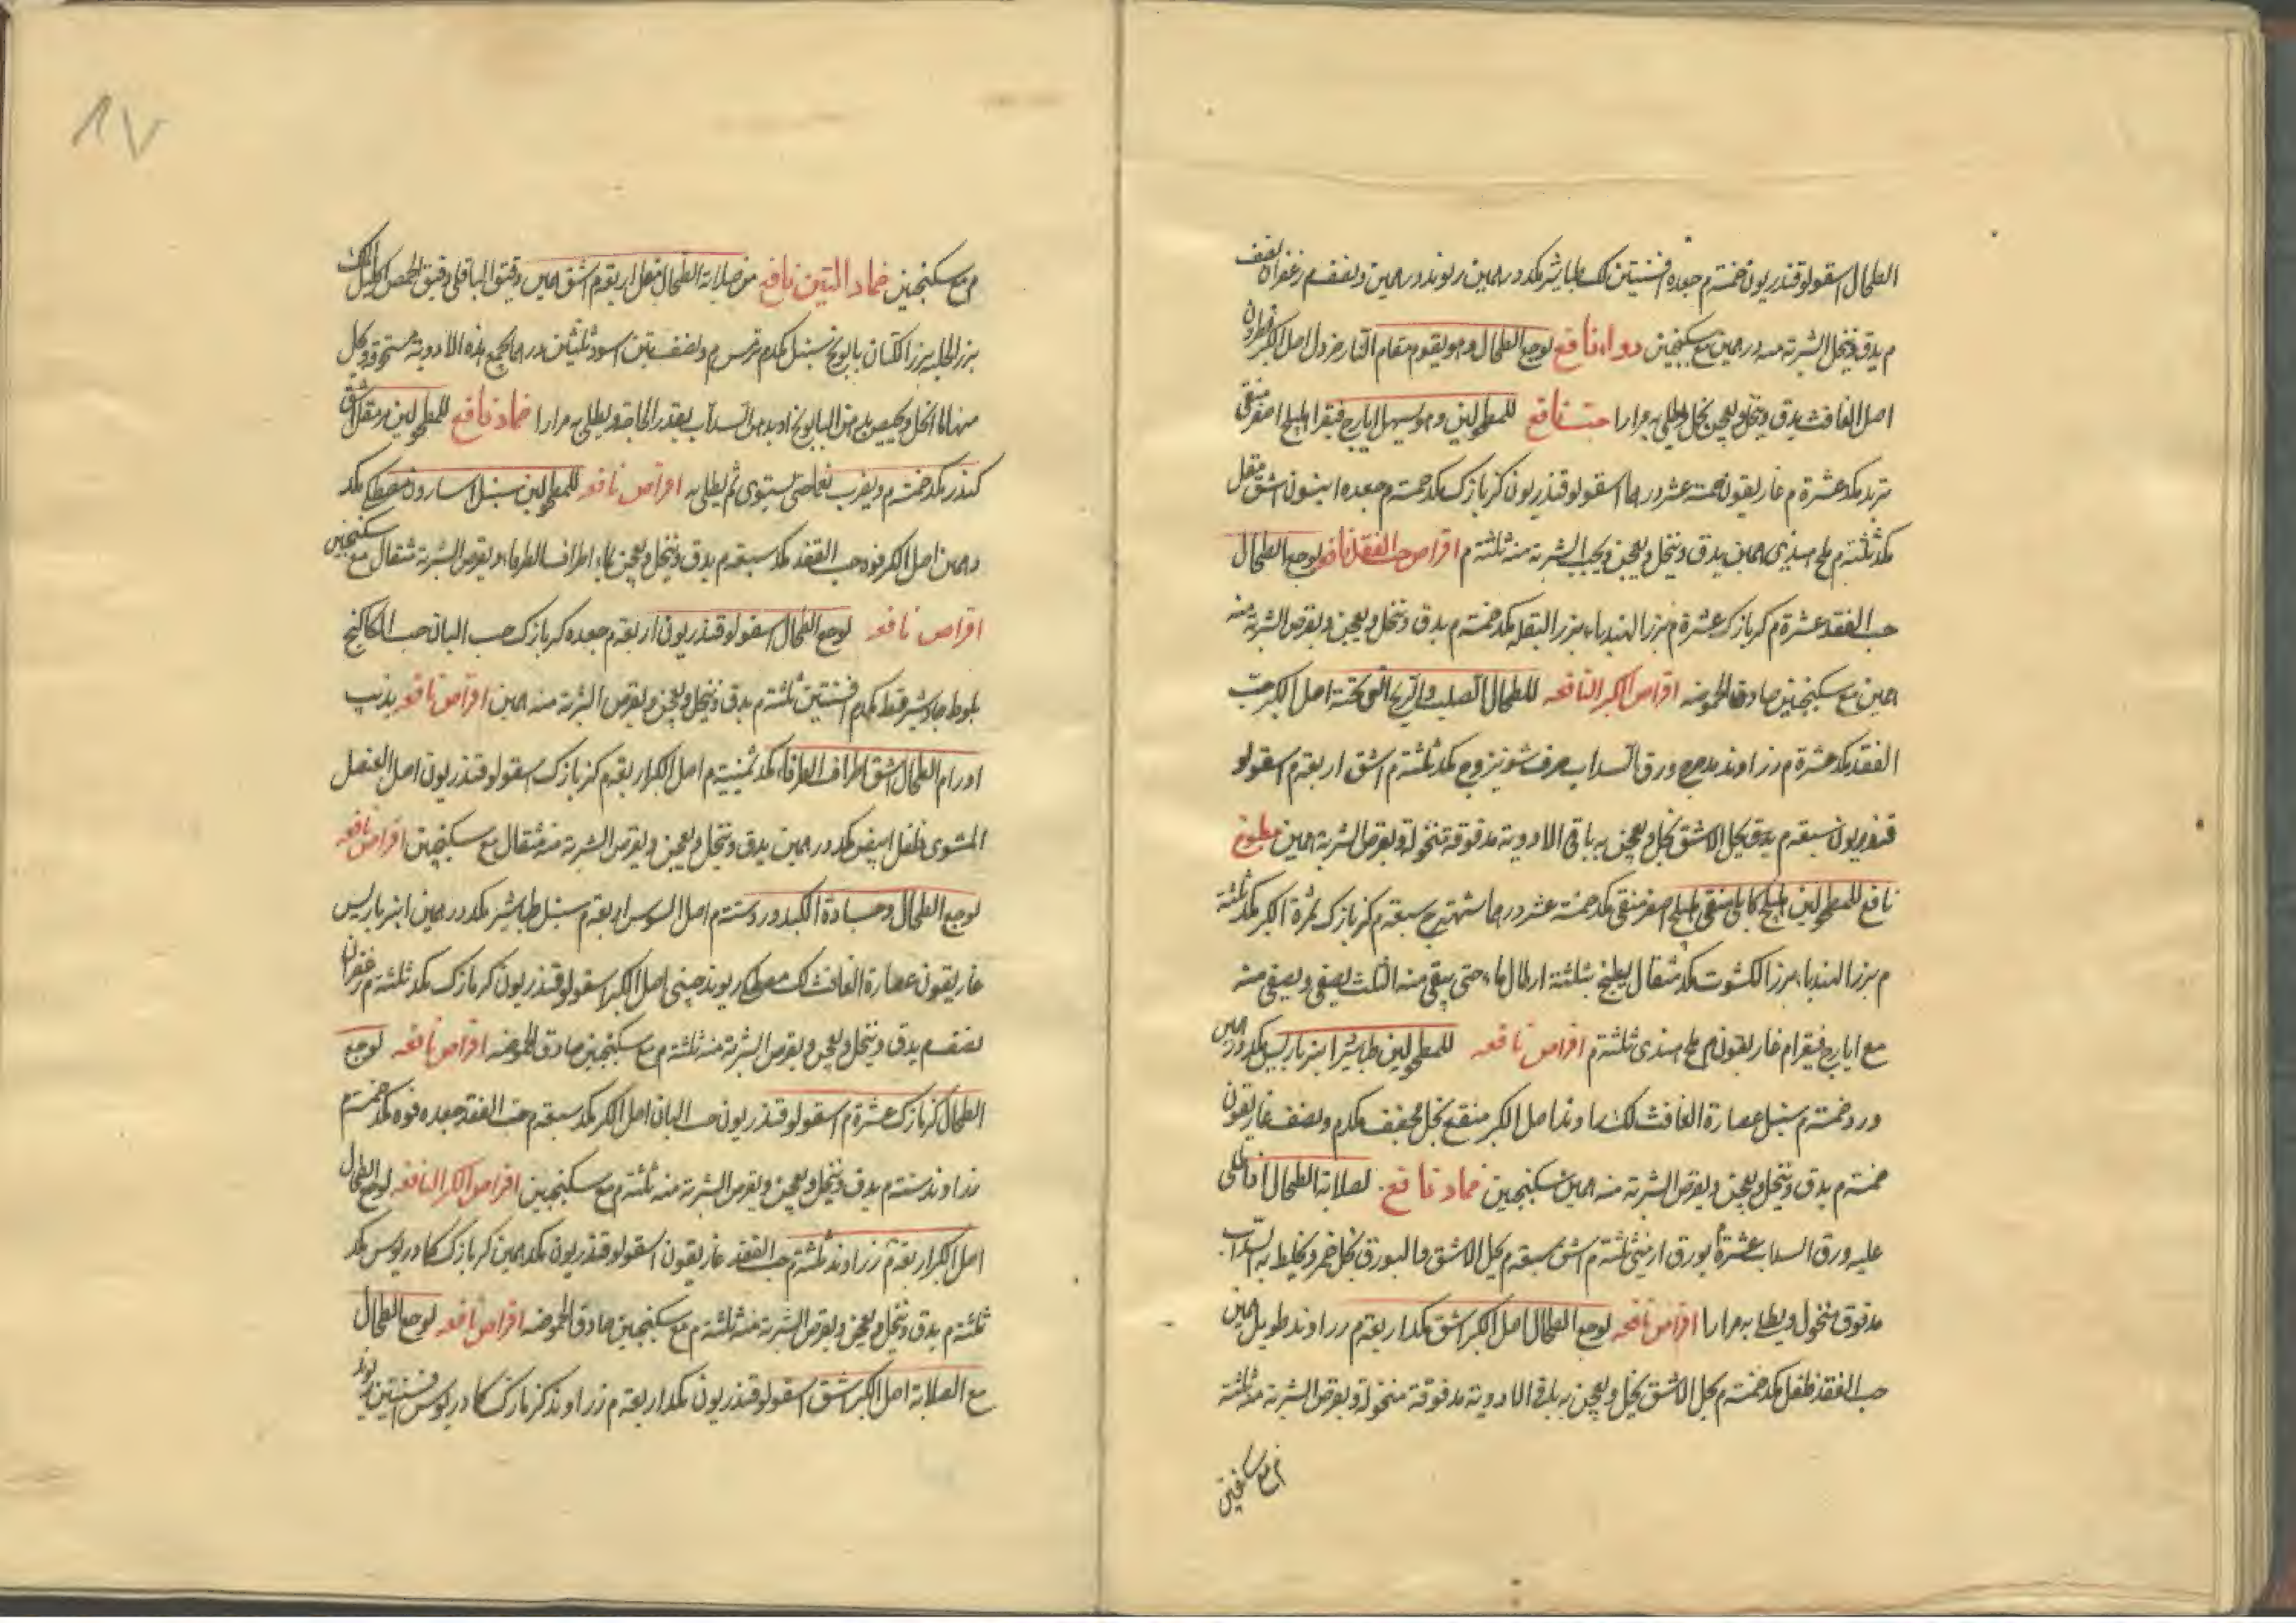 الطحال اسقولوقندريون خمسة م جعده افسنتين لك طباشير مكد درهمين ريوند درهمين ونصف م زعفران نصف
م يدق وينخل الشربة منه درهمين مع سكنجبين دواء نافع لوجع الطحال وهو يقوم مقام النار خردل اصل الكبر نطرون
اصل الغافث يدق وينخل ويعجن بخل ويطلى به مرارا حب نافع للمطحولين وهو يسهل ايارج فيقرا هليلج اصفر منقى
تربد مكد عشرة م غاريقون خمسة عشر درهما اسقولوقندريون كزبازك مكد خمسة م جعده انيسون اشق مقل
مكد ثلثة م ملح هندي همين يدق وينخل ويعجن ويحبب الشربة منه ثلثة م اقراص حب الفقد نافع لوجع الطحال
حب الفقد عشرة م كزبازك عشرة م بزر الهندباء بزر البقله مكد خمسة م يدق وينخل ويعجن ويقرص الشربة منه
همين مع سكنجبين صادق الحموضه اقراص الكبر النافعه للطحال الصلب والريح التي تحته اصل الكبر حب
الفقد مكد عشرة م زراوند مدحرج ورق السداب حرف شونيز وج مكد ثلثة م اشق اربعة م اسقولو
قندريون سبعة م يدق يحل الاشق بخل ويعجن به باقي الادوية مدقوقة منخولة ويقرص الشربة همين مطبوخ
نافع للمطحولين هليلج كابلي منقى هليلج اصفر منقى مكد خمسة عشر درهما شهترج سبعة م كزبازك ثمرة الكبر مكد ثلثة
م بزر الهندباء بزر الكشوت مكد مثقال يطبخ بثلثة ارطال ماء حتى يبقى منه الثلث يصفى ويصفى منه
مع ايارج فيقرا م غاريقون م ملح هندي ثلثة م اقراص نافعه للمطحولين طباشير انبرباريس مكد درهمين
ورد خمسة م سنبل عصارة الغافث لك راوند اصل الكبر منقع بخل مجفف مكد م ونصف غاريقون
خمسة م يدق وينخل ويعجن ويقرص الشربة منه همين سكنجبين ضماد نافع لصلابة الطحال اذا طلى
عليه ورق السداب عشرة بورق ارمني ثلثة م اشق سبعة م يحل الاشق والبورق بخل خمر ويخلط به السداب
مدقوق منخول ويطلى به مرارا اقراص نافعه لوجع الطحال اصل الكبر اشق مكد اربعة م زراوند طويل همين
حب الفقد فلفل مكد خمسة م يحل الاشق بخل ويعجن به باقي الادوية مدقوقة منخولة ويقرص الشربة منه ثلثة
م مع سكنجبين
٨٧
م مع سكنجبين ضماد التين نافع من صلابة الطحال مقل اربعة م اشق همين دقيق الباقلى دقيق الحمص اكليل الملك
بزر الحلبه بزر الكتان بابونج سنبل مكد م ترمس م ونصف تين اسود ثلثين درهما يجمع هذه الادوية مسحوقة ويحل
منها ما انحل ويعجن بدهن البابونج او بدهن السداب بقدر الحاجة ويطلى به مرارا ضماد نافع للمطحولين م مقل اشق
كندر مكد خمسة م ويضرب بخل حتى يستوي ثم يطلى به اقراص نافعه للمطحولين سنبل اسارون مصطكى مكد
درهمين اصل الكبر فوه حب الفقد مكد سبعة م يدق وينخل ويعجن بماء اطراف الطرفاء ويقرص الشربة مثقال مع سكنجبين
اقراص نافعه لوجع الطحال اسقولوقندريون اربعة م جعده كزبازك حب البان حب الكاكنج
بلوط جاوشير قسط مكد م افسنتين ثلثة م يدق وينخل ويعجن ويقرص الشربة منه همين اقراص نافعه يذيب
اورام الطحال اشق اطراف الطرفاء مكد ثمنية م اصل الكبر اربعة م كزبازك اسقولوقندريون اصل العنصل
المشوي فلفل ابيض مكد درهمين يدق وينخل ويعجن ويقرص الشربة منه مثقال مع سكنجبين اقراص نافعه
لوجع الطحال وجساءة الكبد ورد ستة م اصل السوس اربعة م سنبل طباشير مكد درهمين انبرباريس
غاريقون عصارة الغافث لك مصطكى ريوند صيني اصل الكبر اسقولوقندريون كزبازك مكد ثلثة م زعفران
نصف م يدق وينخل ويعجن ويقرص الشربة منه ثلثة م مع سكنجبين صادق الحموضه اقراص نافعه لوجع
الطحال كزبازك عشرة م اسقولوقندريون حب البان اصل الكبر مكد سبعة م حب الفقد جعده فوه مكد خمسة م
زراوند ستة م يدق وينخل ويعجن ويقرص الشربة منه ثلثة م مع سكنجبين اقراص الكبر النافعه لوجع الطحال
اصل الكبر اربعة م زراوند ثلثة م حب الفقد غاريقون اسقولوقندريون مكد همين كزبازك كمادريوس مكد
ثلثة م يدق وينخل ويعجن ويقرص الشربة منه ثلثة م مع سكنجبين صادق الحموضه اقراص نافعه لوجع الطحال
مع الصلابة اصل الكبر اشق اسقولوقندريون مكد اربعة م زراوند كزبازك كمادريوس افسنتين ريوند